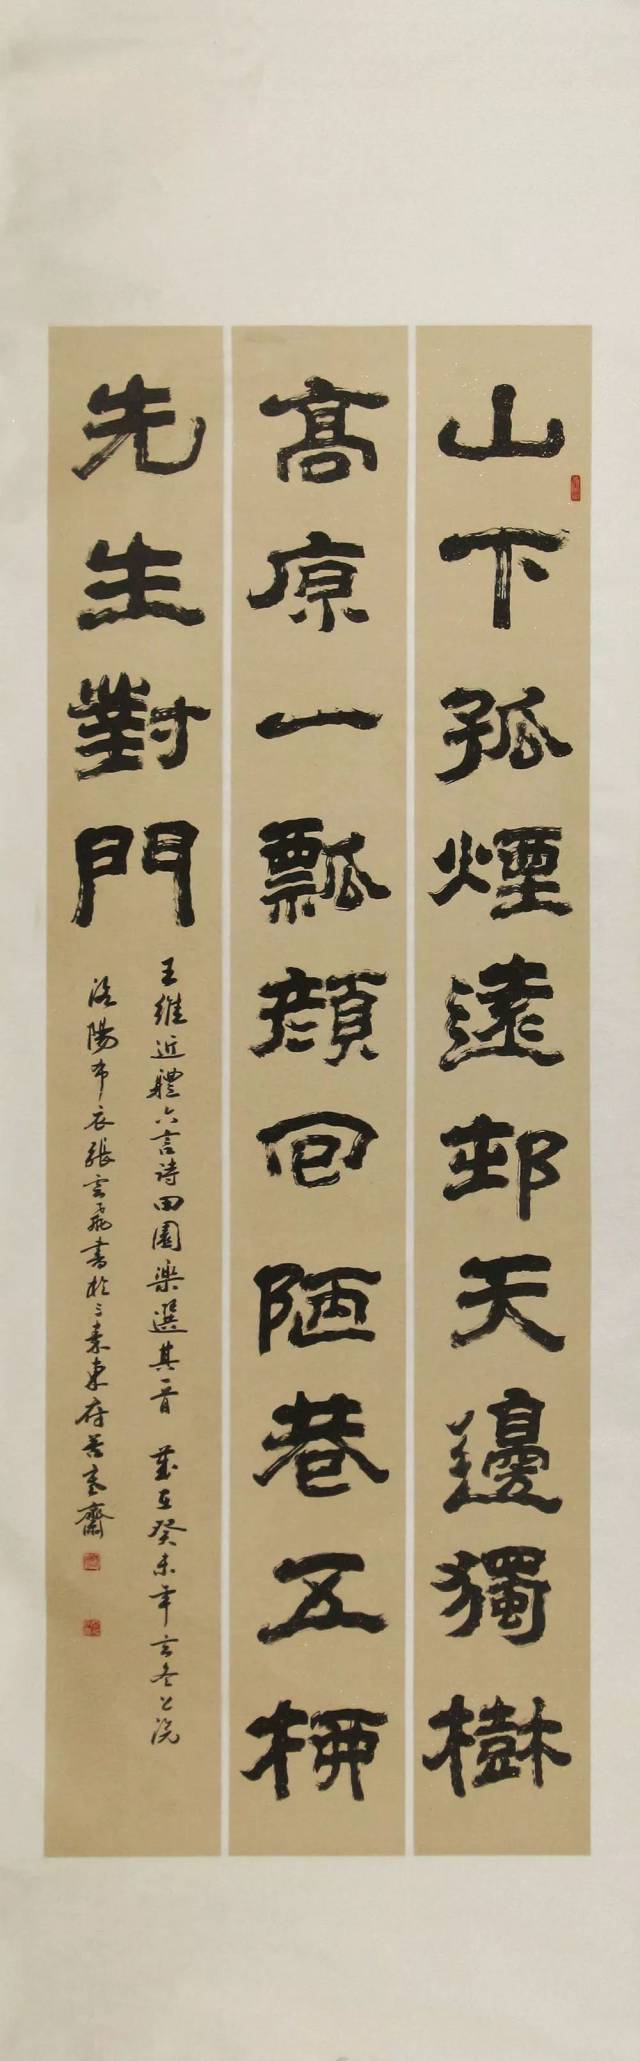 山下孤煙遠邨天邊獨樹
高原一瓢顏回陋巷五柳
先生對門
王維近體六言詩田園樂選其一首 歲在癸未年玄冬之浣
洛陽布衣張雲飛書於京東府齋